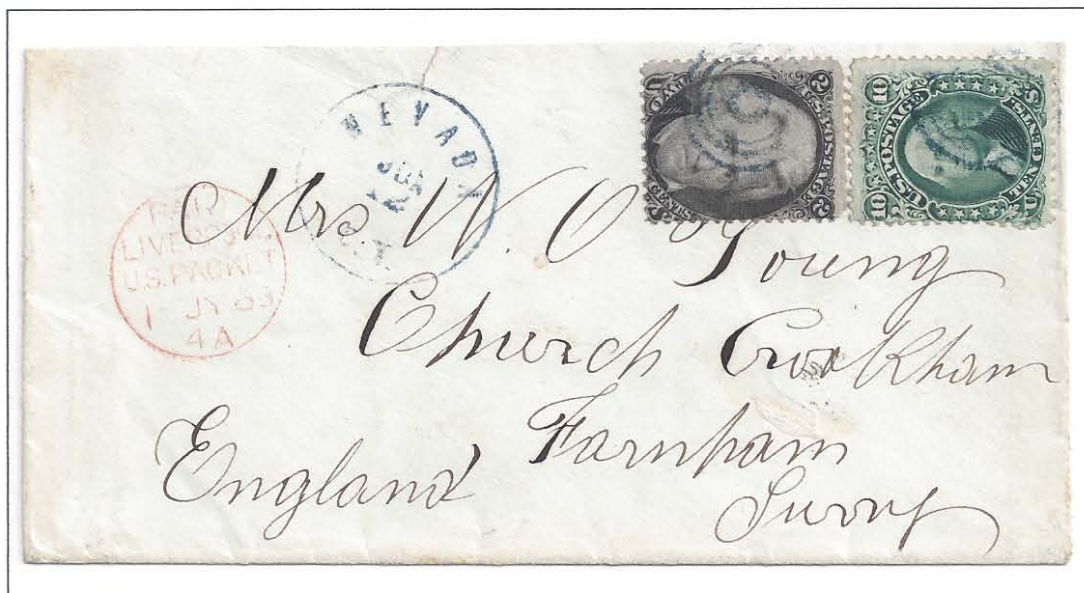 NEVADA
JUN
PAID
LIVERPOOL
U.S. PACKET
1 JY 63
4 A
U 2 2
U.S. POSTAGE
10 10
U.S. POSTAGE
TEN CENTS U
Mrs W. O Young
Church Crookham
Farnham
Surrey
England